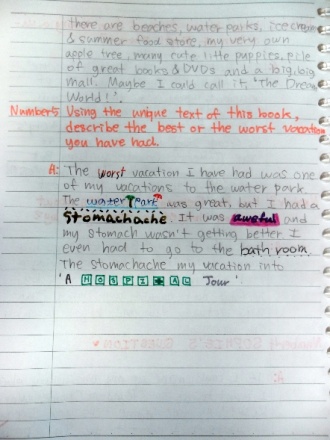 there are beaches, water parks, ice cream
& summer food store, my very own
apple tree, many cute little puppies, pile
of great books & DVDs and a big, big
mall. Maybe I could call it, 'The Dream
World!'.
Number5 Using the unique text of this book,
describe the best or the worst vacation
you have had.
A: The worst vacation I have had was one
of my vacations to the water park.
The water Park was great, but I had a
stomachache. It was aweful and
my stomach wasn't getting better I
even had to go to the bath room.
The stomachache my vacation into
'A HOSPITAL Tour'